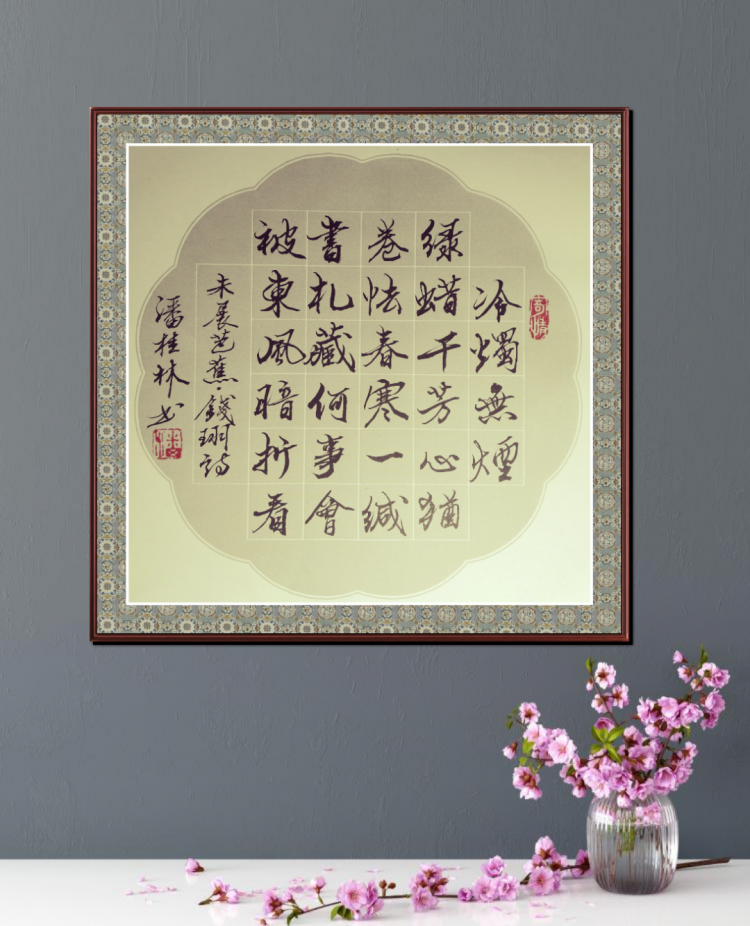 寄情
冷燭無煙
绿蜡千芳心猶
卷怯春寒一缄
書札藏何事會
被東風暗折看
未展芭蕉·錢珝詩
潘桂林书